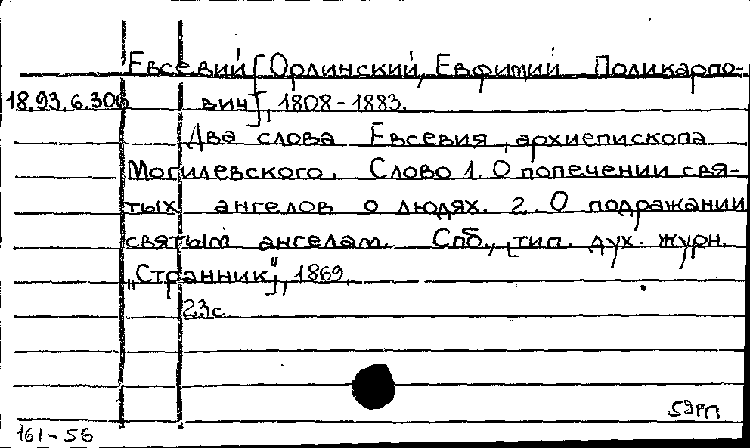 Евсевий [Орлинский, Евфимий Поликарпо-
18.93.6.306 вич], 1808-1883.
Два слова Евсевия, архиепископа
Могилевского. Слово 1. О попечении свя-
тых ангелов о людях. 2. О подражании
святым ангелам. Спб., [тип. дух. журн.
„Странник"], 1869.
23с
59РП
161-56